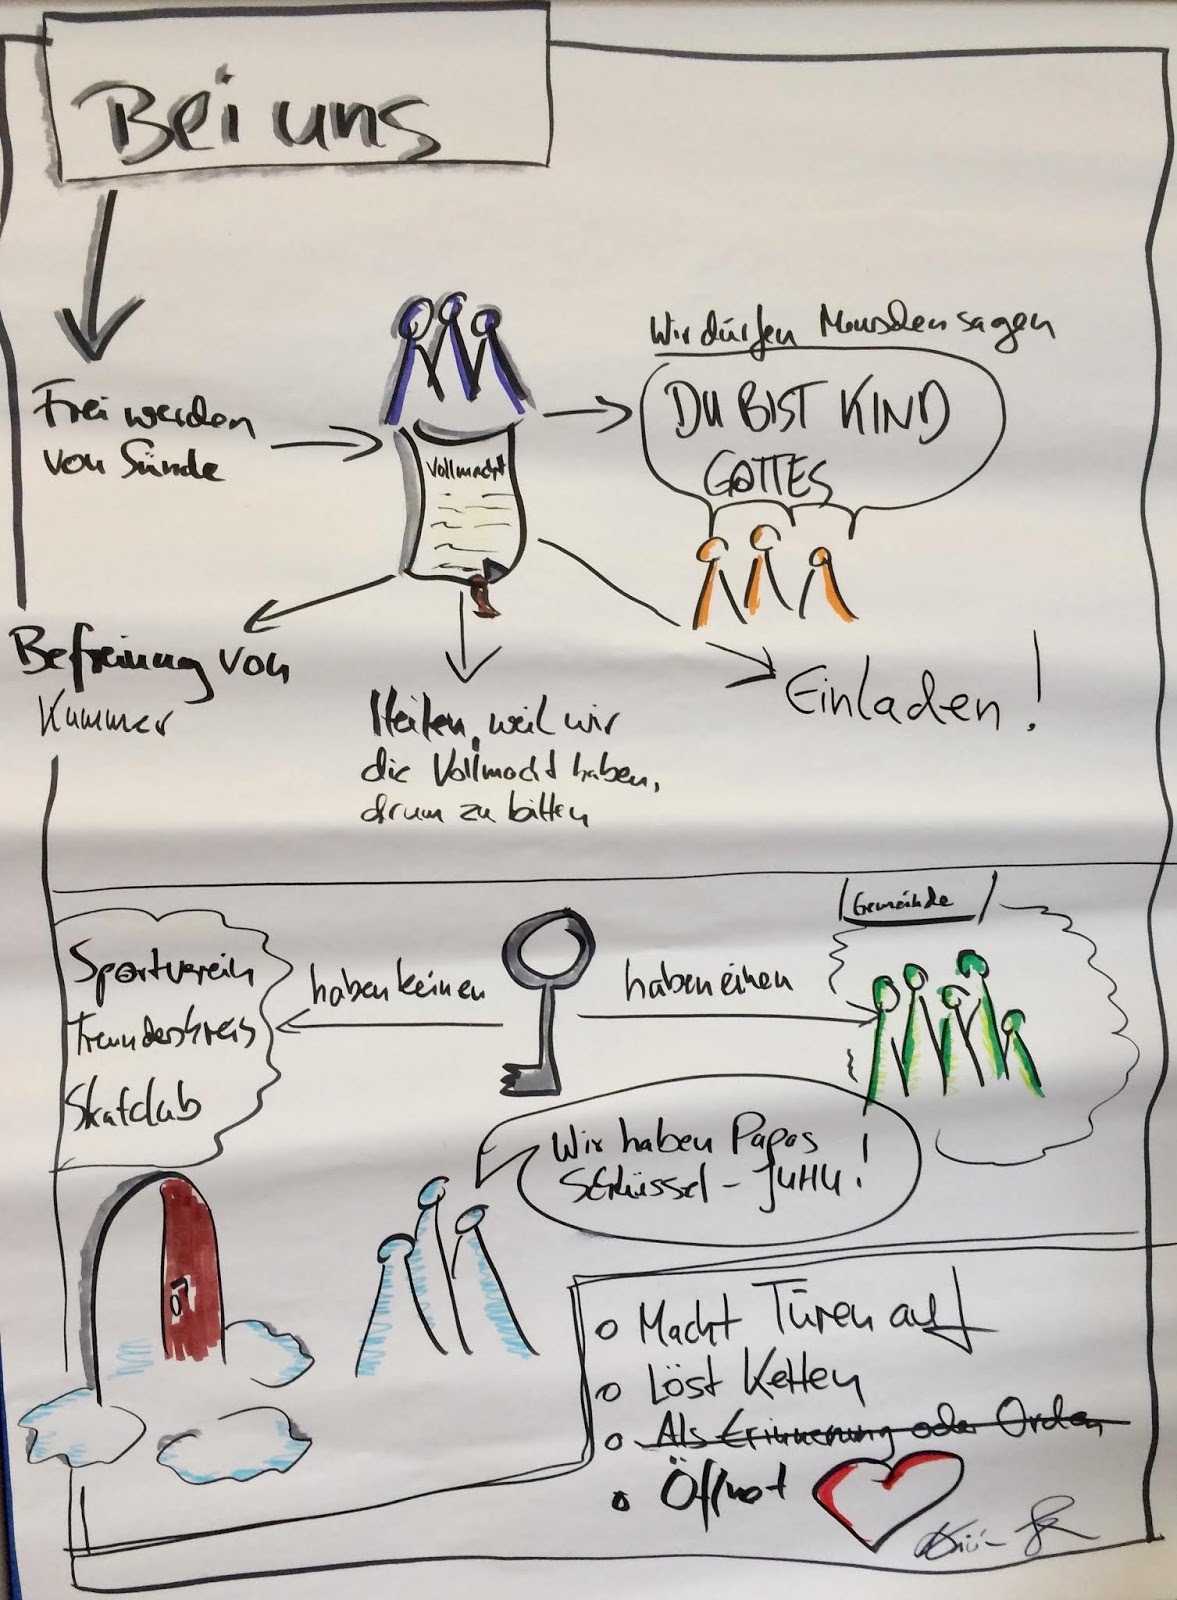 Bei uns
Frei werden
von Sünde
Vollmacht
Wir dürfen Menschen sagen
DU BIST KIND
GOTTES
Befreiung von
Kummer
Heilen, weil wir
die Vollmacht haben,
drum zu bitten
Einladen!
Sportverein
Freundeskreis
Skatclub
haben keinen
haben einen
Gemeinde
Wir haben Papas
Schlüssel – JUHU!
Macht Türen auf
Löst Ketten
Als Erinnerung oder Orden
Öffnet